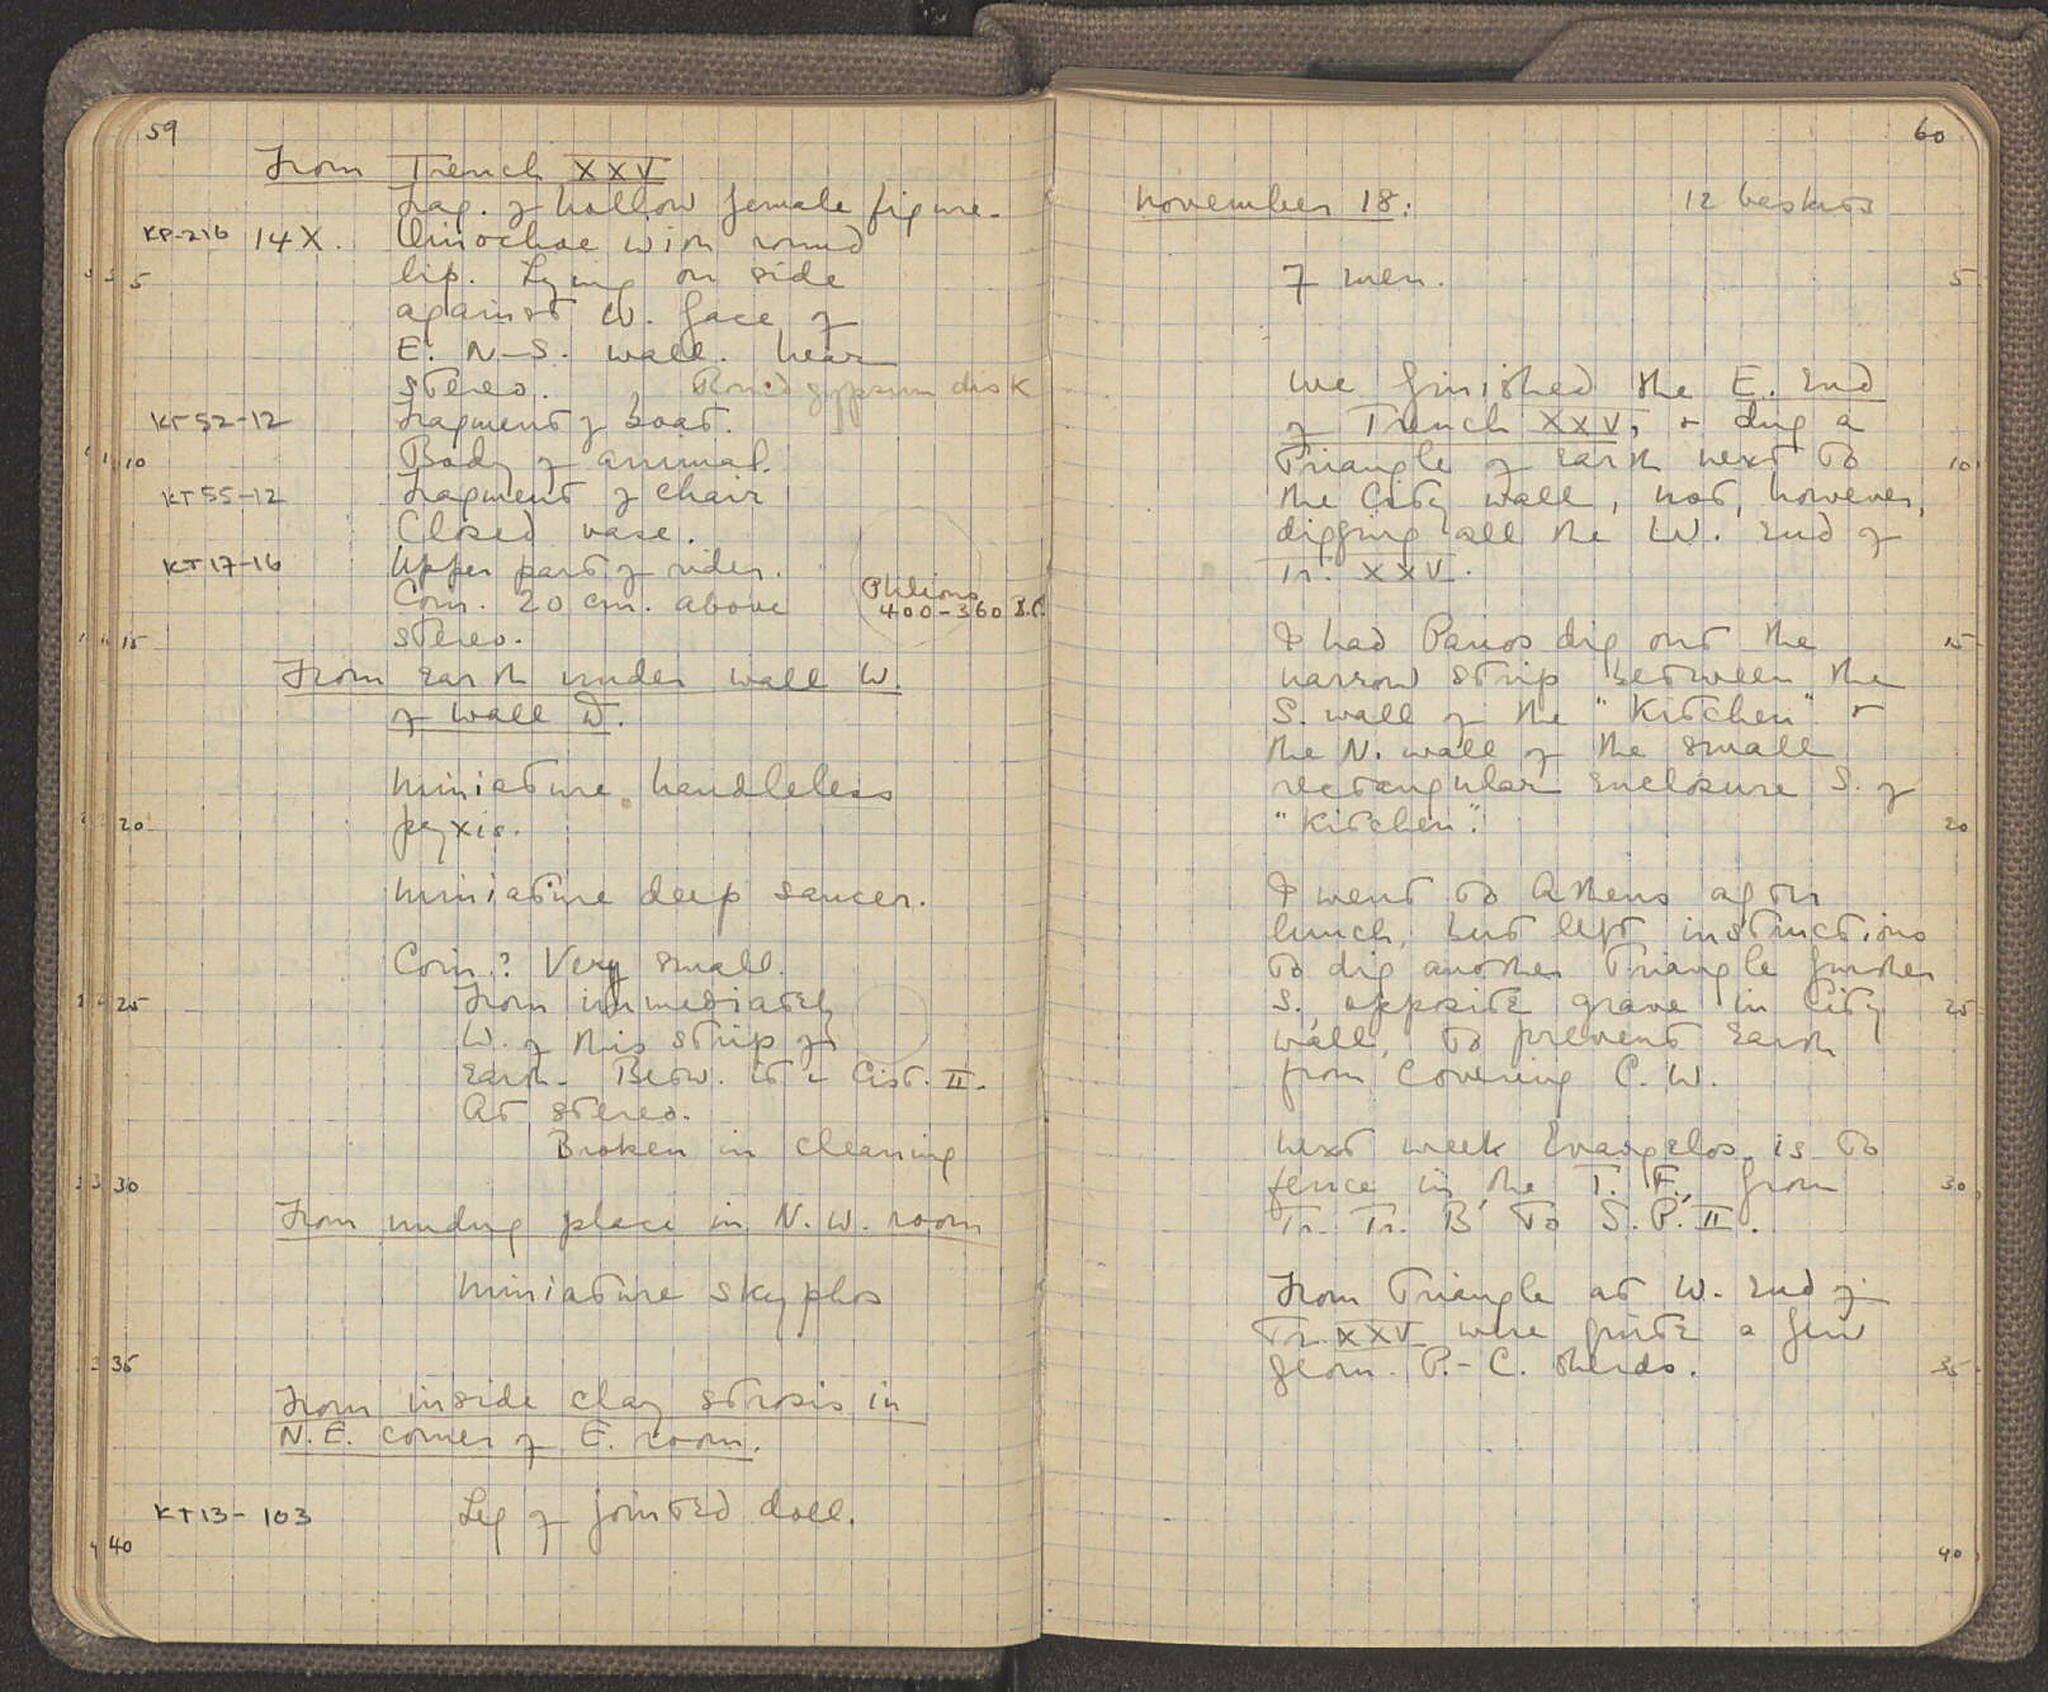 59
From Trench XXV
Frag. of hollow female figure.
KP-216 14X. Oinochoe with round
5 lip. Lying on side
against W. face of
E. N-S. wall. Near
stereo. Round gypsum disk
KT 52-12 Fragment of boat.
10 Body of animal.
KT 55-12 Fragment of chair
Closed vase.
KT 17-16 Upper part of rider.
Coin. 20 cm. above Phlious
400-360 B.C.
15 stereo.
From earth under wall W.
of wall D.
Miniature handleless
20 pyxis.
Miniature deep saucer.
Coin? Very small.
25 From immediately
W. of this strip of
earth. Betw. it + Cist. II.
At stereo.
Broken in cleaning
30
From undug place in N.W. room
Miniature skyphos
35
From inside clay strosis in
N.E. corner of E. room.
KT 13-103 Leg of jointed doll.
40
60
November 18: 12 baskets
7 men. 5
We finished the E. end
of Trench XXV, + dug a
triangle of earth next to 10
the City Wall, not, however,
digging all the W. end of
Tr. XXV.
I had Panos dig out the 15
narrow strip between the
S. wall of the "Kitchen" +
the N. wall of the small
rectangular enclosure S. of
"Kitchen". 20
I went to Athens after
lunch, but left instructions
to dig another triangle further
S., opposite grave in City 25
wall, to prevent earth
from covering C.W.
Next week Evangelos is to
fence in the T. F., from 30
Tr. Tr. B to S.P. II.
From triangle at W. end of
Tr. XXV were quite a few
geom. P.-C. sherds. 35
40